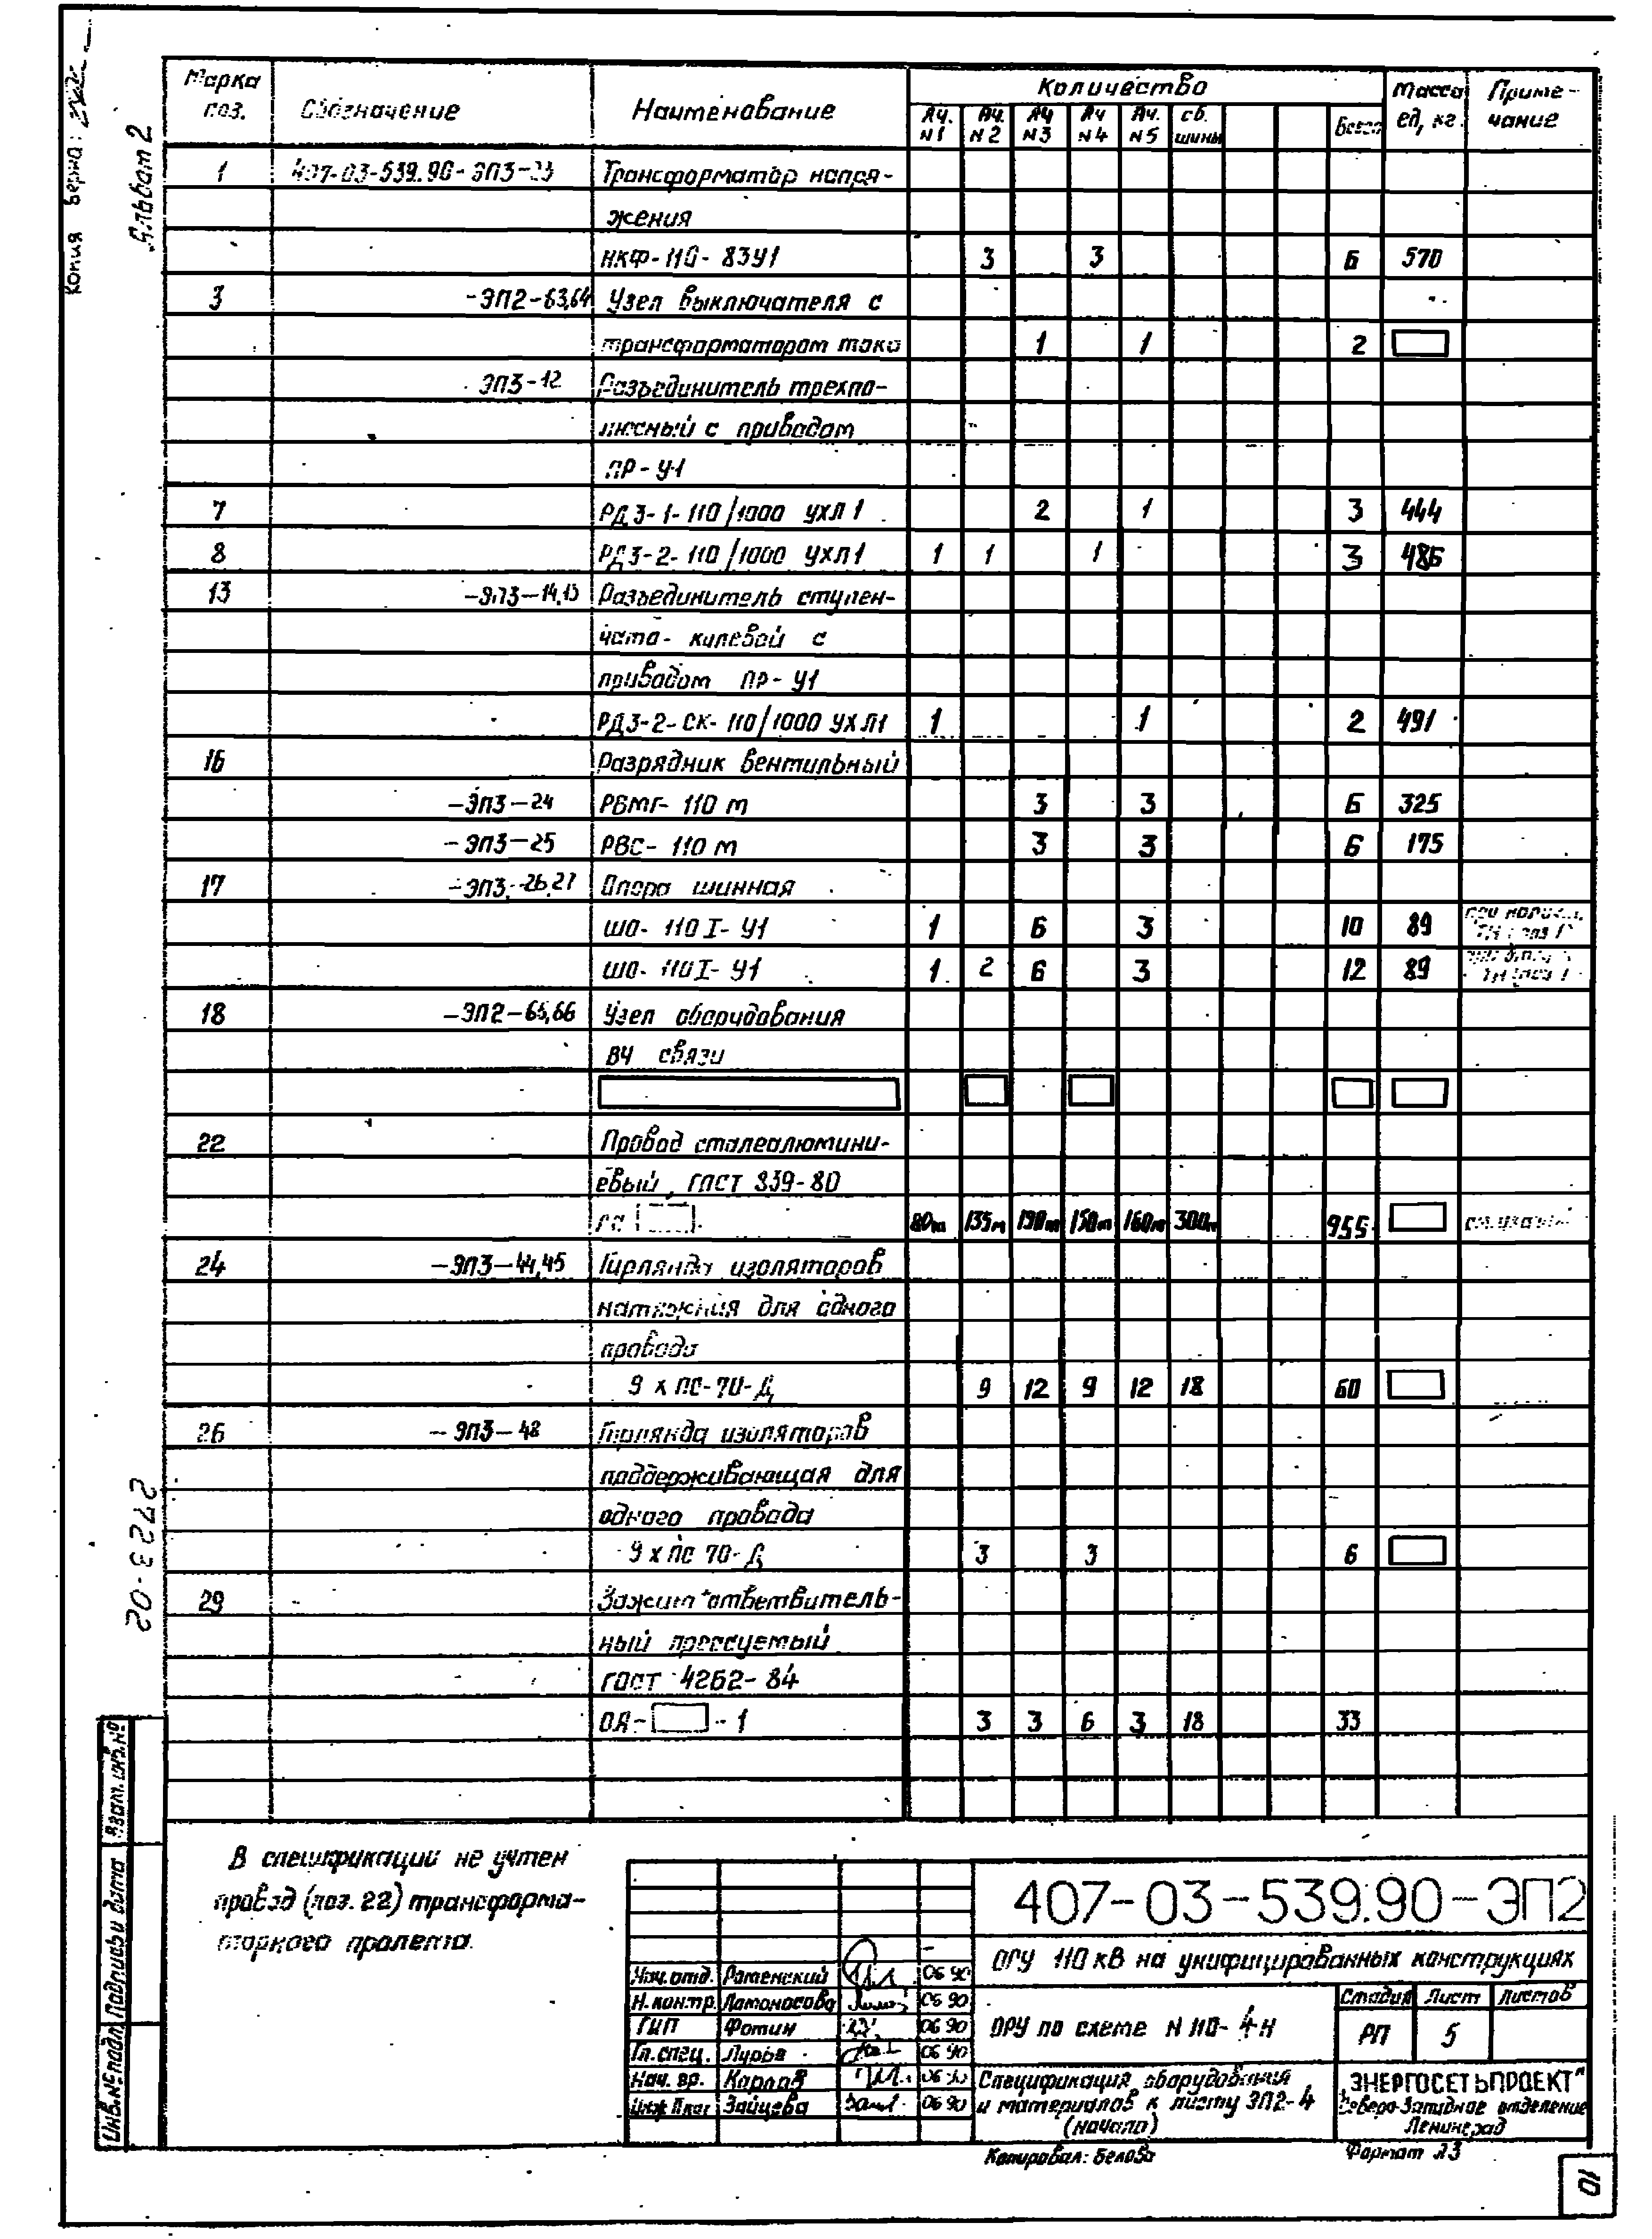 Копия верна:
Альбом 2
Марка поз. Обозначение Наименование Количество Масса ед, кг. Примечание
Яч. N1 Яч. N2 Яч N3 Яч N4 Яч. N5 сб. шины Всего
1 407-03-539.90-ЭП3-23 Трансформатор напря-
жения
НКФ-110-83У1 3 3 6 570
3 -ЭП2-63,64 Узел выключателя с
трансформатором тока 1 1 2
ЭП3-12 Разъединитель трехпо-
люсный с приводом
ПР-У1
7 РДЗ-1-110/1000 УХЛ1 2 1 3 444
8 РДЗ-2-110/1000 УХЛ1 1 1 1 3 486
13 -ЭП3-14,15 Разъединитель ступен-
чато-килевой с
приводом ПР-У1
РДЗ-2-СК-110/1000 УХЛ1 1 1 2 491
16 Разрядник вентильный
-ЭП3-24 РВМГ-110 м 3 3 6 325
-ЭП3-25 РВС-110 м 3 3 6 175
17 -ЭП3-26,27 Опора шинная
ШО-110 I-У1 1 6 3 10 89
ШО-110 I-У1 1 2 6 3 12 89
18 -ЭП2-65,66 Узел оборудования
ВЧ связи
22 Провод сталеалюмини-
евый, ГОСТ 839-80
80м 135м 190м 150м 160м 300м 955
24 -ЭП3-44,45 Гирлянда изоляторов
натяжная для одного
провода
9 х ПС-70-Д 9 12 9 12 18 60
26 -ЭП3-48 Гирлянда изоляторов
поддерживающая для
одного провода
9 х ПС 70-Д 3 3 6
29 Зажим ответвитель-
ный прессуемый
ГОСТ 4262-84
ОА- -1 3 3 6 3 18 33
В спецификации не учтен
провод (поз. 22) трансформа-
торного пролета.
2723-02
Взам. инв. №
Подпись и дата
Инв. № подл.
407-03-539.90-ЭП2
ОРУ 110 кВ на унифицированных конструкциях
Нач. отд. Роменский 06 90
Н. контр. Ломоносова 06 90
ГИП Фотин 06 90
Гл. спец. Лурье 06 90
Нач. гр. Карпов 06 90
Инж. II кат. Зайцева 06 90
ОРУ по схеме N 110-4Н
Стадия Лист Листов
РП 5
Спецификация оборудования
и материалов к листу ЭП2-4
(начало)
ЭНЕРГОСЕТЬПРОЕКТ"
Северо-Западное отделение
Ленинград
Копировал: Белова Формат А3
10